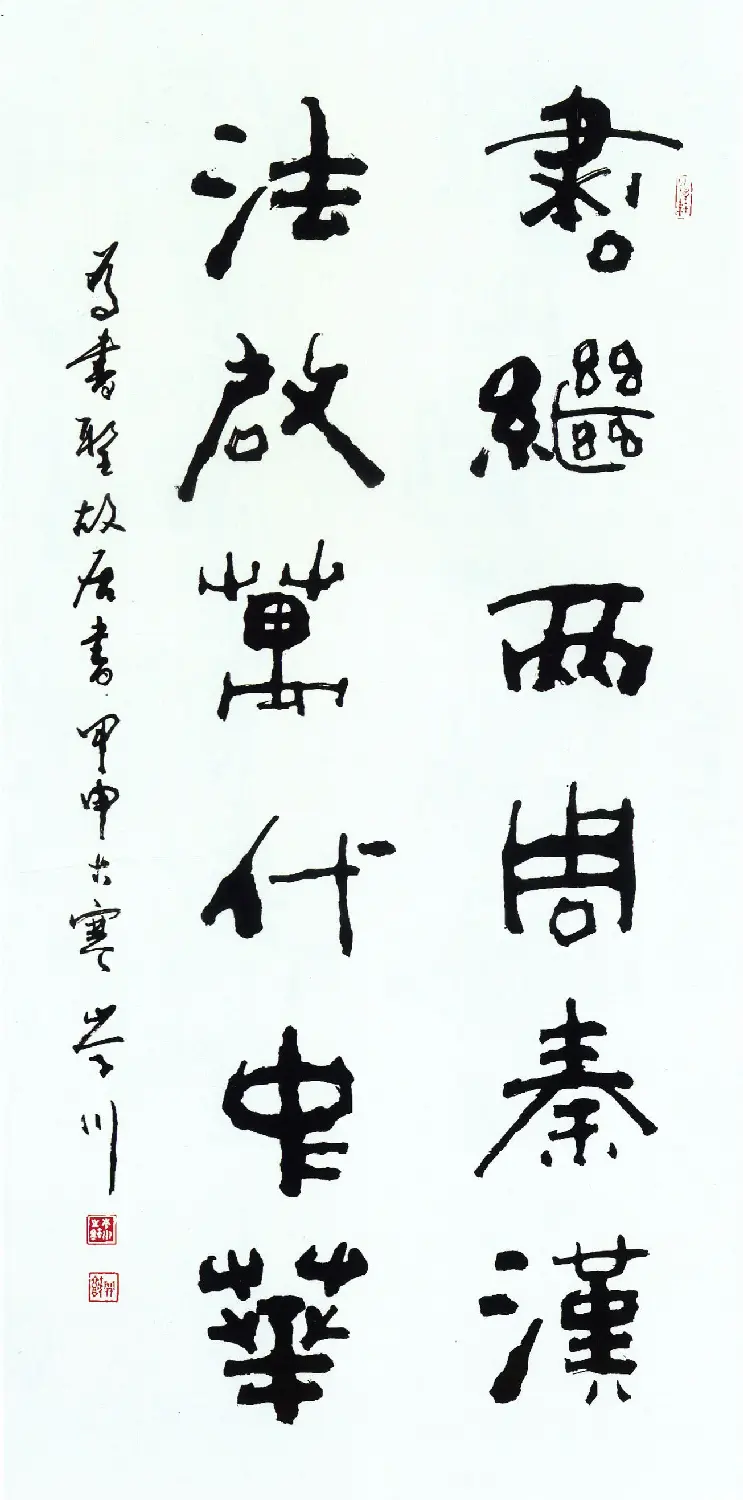 書繼兩周秦漢
法啟萬代中華
为書聖故居書 甲申大寒 岑川